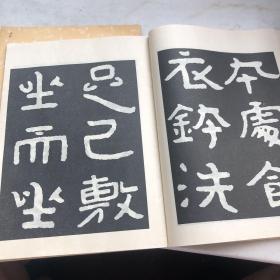 夲處
衣鉢洗
足已敷
坐而坐